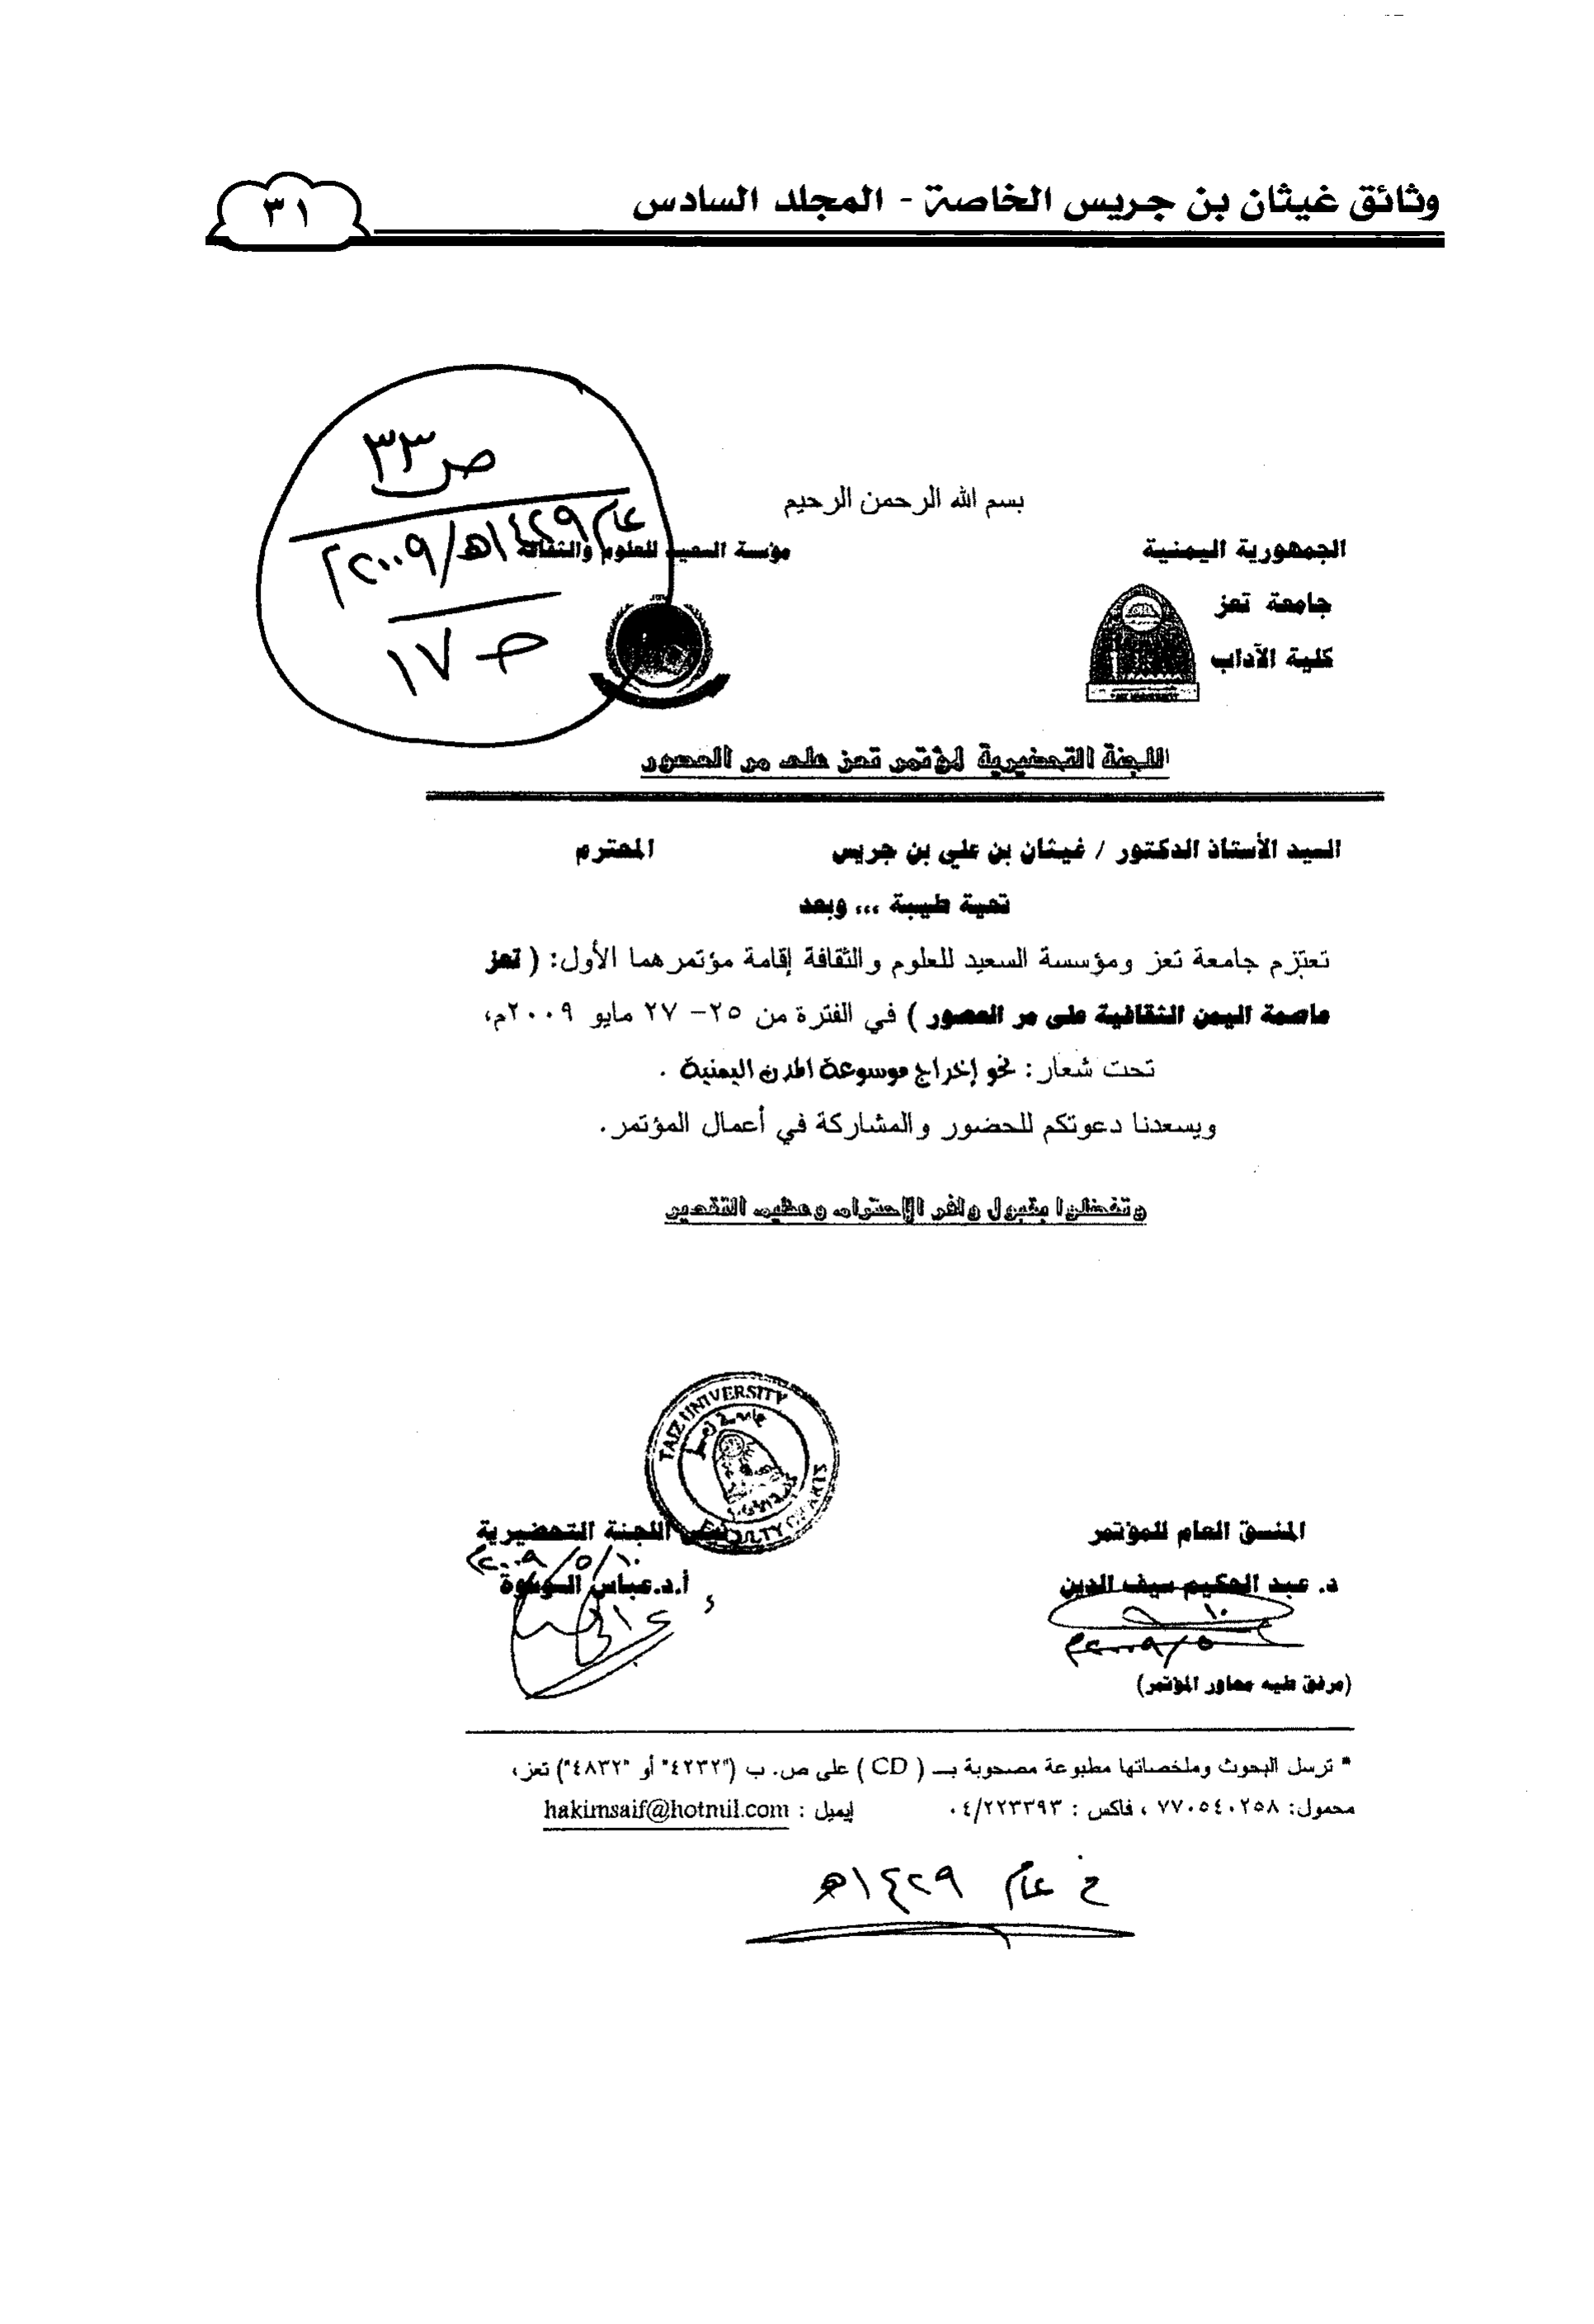 وثائق غيثان بن جريس الخاصة - المجلد السادس
٣١
ص ٣٣
عام ١٤٢٩هـ/٢٠٠٩م
ح ١٧
بسم الله الرحمن الرحيم
الجمهورية اليمنية
مؤسسة السعيد للعلوم والثقافة
جامعة تعز
كلية الآداب
اللجنة التحضيرية لمؤتمر تعز على مر العصور
السيد الأستاذ الدكتور / غيثان بن علي بن جريس المحترم
تحية طيبة ... وبعد
تعتزم جامعة تعز ومؤسسة السعيد للعلوم والثقافة إقامة مؤتمرهما الأول: ( تعز
عاصمة اليمن الثقافية على مر العصور ) في الفترة من ٢٥- ٢٧ مايو ٢٠٠٩م،
تحت شعار: نحو إخراج موسوعة المدن اليمنية .
ويسعدنا دعوتكم للحضور والمشاركة في أعمال المؤتمر.
وتفضلوا بقبول وافر الإحترام وعظيم التقدير
TAIZ UNIVERSITY
جامعة تعز
FACULTY OF ARTS
المنسق العام للمؤتمر
اللجنة التحضيرية
٢٠٠٩/٥/١٠م
د. عبد الحكيم سيف الدين
أ.د.عباس السوسوة
١٠
٢٠٠٩/٥م
(مرفق طيه محاور المؤتمر)
* ترسل البحوث وملخصاتها مطبوعة مصحوبة بـــ ( CD ) على ص. ب ("٤٢٣٢" أو "٤٨٣٢") تعز،
محمول: ٧٧٠٥٤٠٢٥٨ ، فاكس : ٠٤/٢٢٣٣٩٣ إيميل : hakimsaif@hotmil.com
خ عام ١٤٢٩هـ